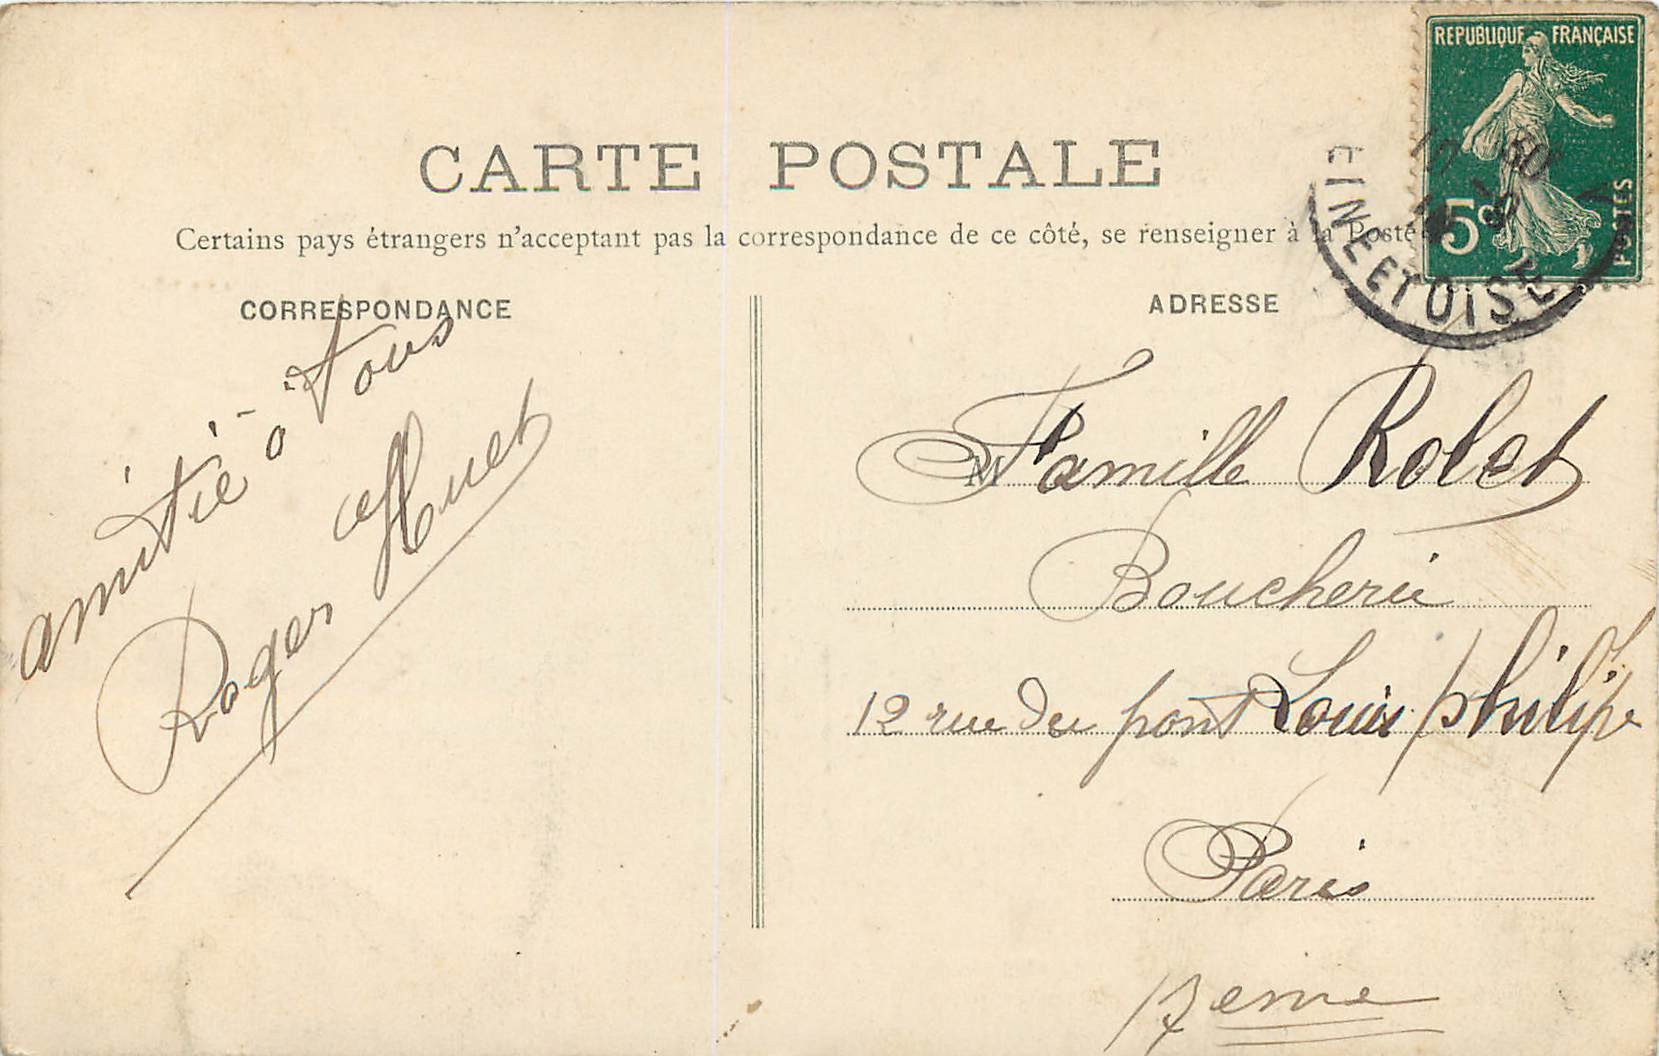 REPUBLIQUE FRANÇAISE
5c
POSTES
EINE ET OISE
CARTE POSTALE
Certains pays étrangers n'acceptant pas la correspondance de ce côté, se renseigner à la Poste
CORRESPONDANCE
amitié à tous
Roger Huet
ADRESSE
M Famille Rolet
Boucherie
12 rue du pont Louis philipe
Paris
17eme